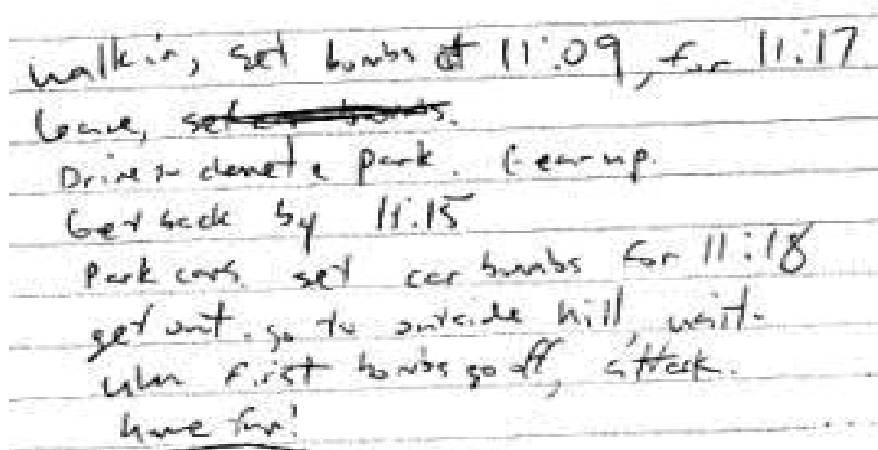 walk in, set bombs at 11:09, for 11:17
leave, set car bombs.
Drive to Park. Gear up.
Get back by 11:15
Park cars. set car bombs for 11:18
get out, go to outside hill, wait.
when first bombs go off, attack.
have fun!